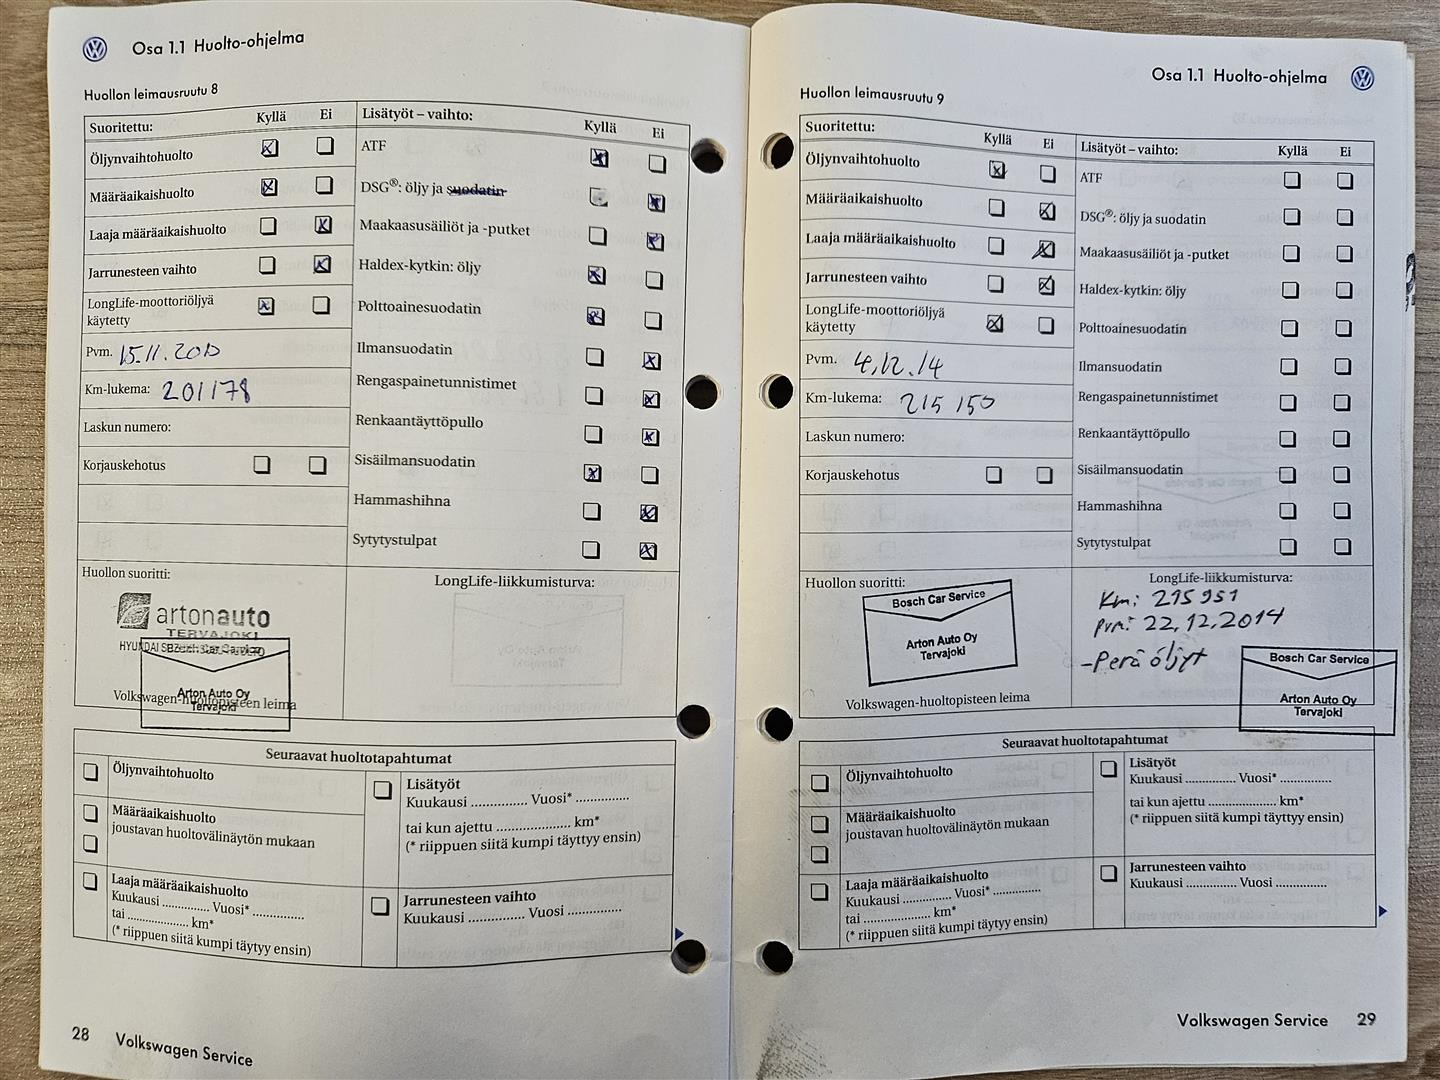 Osa 1.1 Huolto-ohjelma
Huollon leimausruutu 8
Suoritettu: Kyllä Ei
Öljynvaihtohuolto
Määräaikaishuolto
Laaja määräaikaishuolto
Jarrunesteen vaihto
LongLife-moottoriöljyä
käytetty
Pvm. 15.11.2013
Km-lukema: 201178
Laskun numero:
Korjauskehotus
Lisätyöt – vaihto: Kyllä Ei
ATF
DSG®: öljy ja suodatin
Maakaasusäiliöt ja -putket
Haldex-kytkin: öljy
Polttoainesuodatin
Ilmansuodatin
Rengaspainetunnistimet
Renkaantäyttöpullo
Sisäilmansuodatin
Hammashihna
Sytytystulpat
Huollon suoritti:
artonauto
TERVAJOKI
Bosch Car Service
Arton Auto Oy
Tervajoki
Volkswagen-huoltopisteen leima
LongLife-liikkumisturva:
Seuraavat huoltotapahtumat
Öljynvaihtohuolto
Määräaikaishuolto
joustavan huoltovälinäytön mukaan
Laaja määräaikaishuolto
Kuukausi .............. Vuosi* ...............
tai .................. km*
(* riippuen siitä kumpi täytyy ensin)
Lisätyöt
Kuukausi ............... Vuosi* ...............
tai kun ajettu .................... km*
(* riippuen siitä kumpi täyttyy ensin)
Jarrunesteen vaihto
Kuukausi ............... Vuosi ...............
28 Volkswagen Service
Osa 1.1 Huolto-ohjelma
Huollon leimausruutu 9
Suoritettu: Kyllä Ei
Öljynvaihtohuolto
Määräaikaishuolto
Laaja määräaikaishuolto
Jarrunesteen vaihto
LongLife-moottoriöljyä
käytetty
Pvm. 4.12.14
Km-lukema: 215 150
Laskun numero:
Korjauskehotus
Lisätyöt – vaihto: Kyllä Ei
ATF
DSG®: öljy ja suodatin
Maakaasusäiliöt ja -putket
Haldex-kytkin: öljy
Polttoainesuodatin
Ilmansuodatin
Rengaspainetunnistimet
Renkaantäyttöpullo
Sisäilmansuodatin
Hammashihna
Sytytystulpat
Huollon suoritti:
Bosch Car Service
Arton Auto Oy
Tervajoki
Volkswagen-huoltopisteen leima
LongLife-liikkumisturva:
Km: 215951
pvm: 22.12.2014
-Perä öljyt
Bosch Car Service
Arton Auto Oy
Tervajoki
Seuraavat huoltotapahtumat
Öljynvaihtohuolto
Määräaikaishuolto
joustavan huoltovälinäytön mukaan
Laaja määräaikaishuolto
Kuukausi .............. Vuosi* ...............
tai .................. km*
(* riippuen siitä kumpi täytyy ensin)
Lisätyöt
Kuukausi ............... Vuosi* ...............
tai kun ajettu .................... km*
(* riippuen siitä kumpi täyttyy ensin)
Jarrunesteen vaihto
Kuukausi ............... Vuosi ...............
Volkswagen Service 29